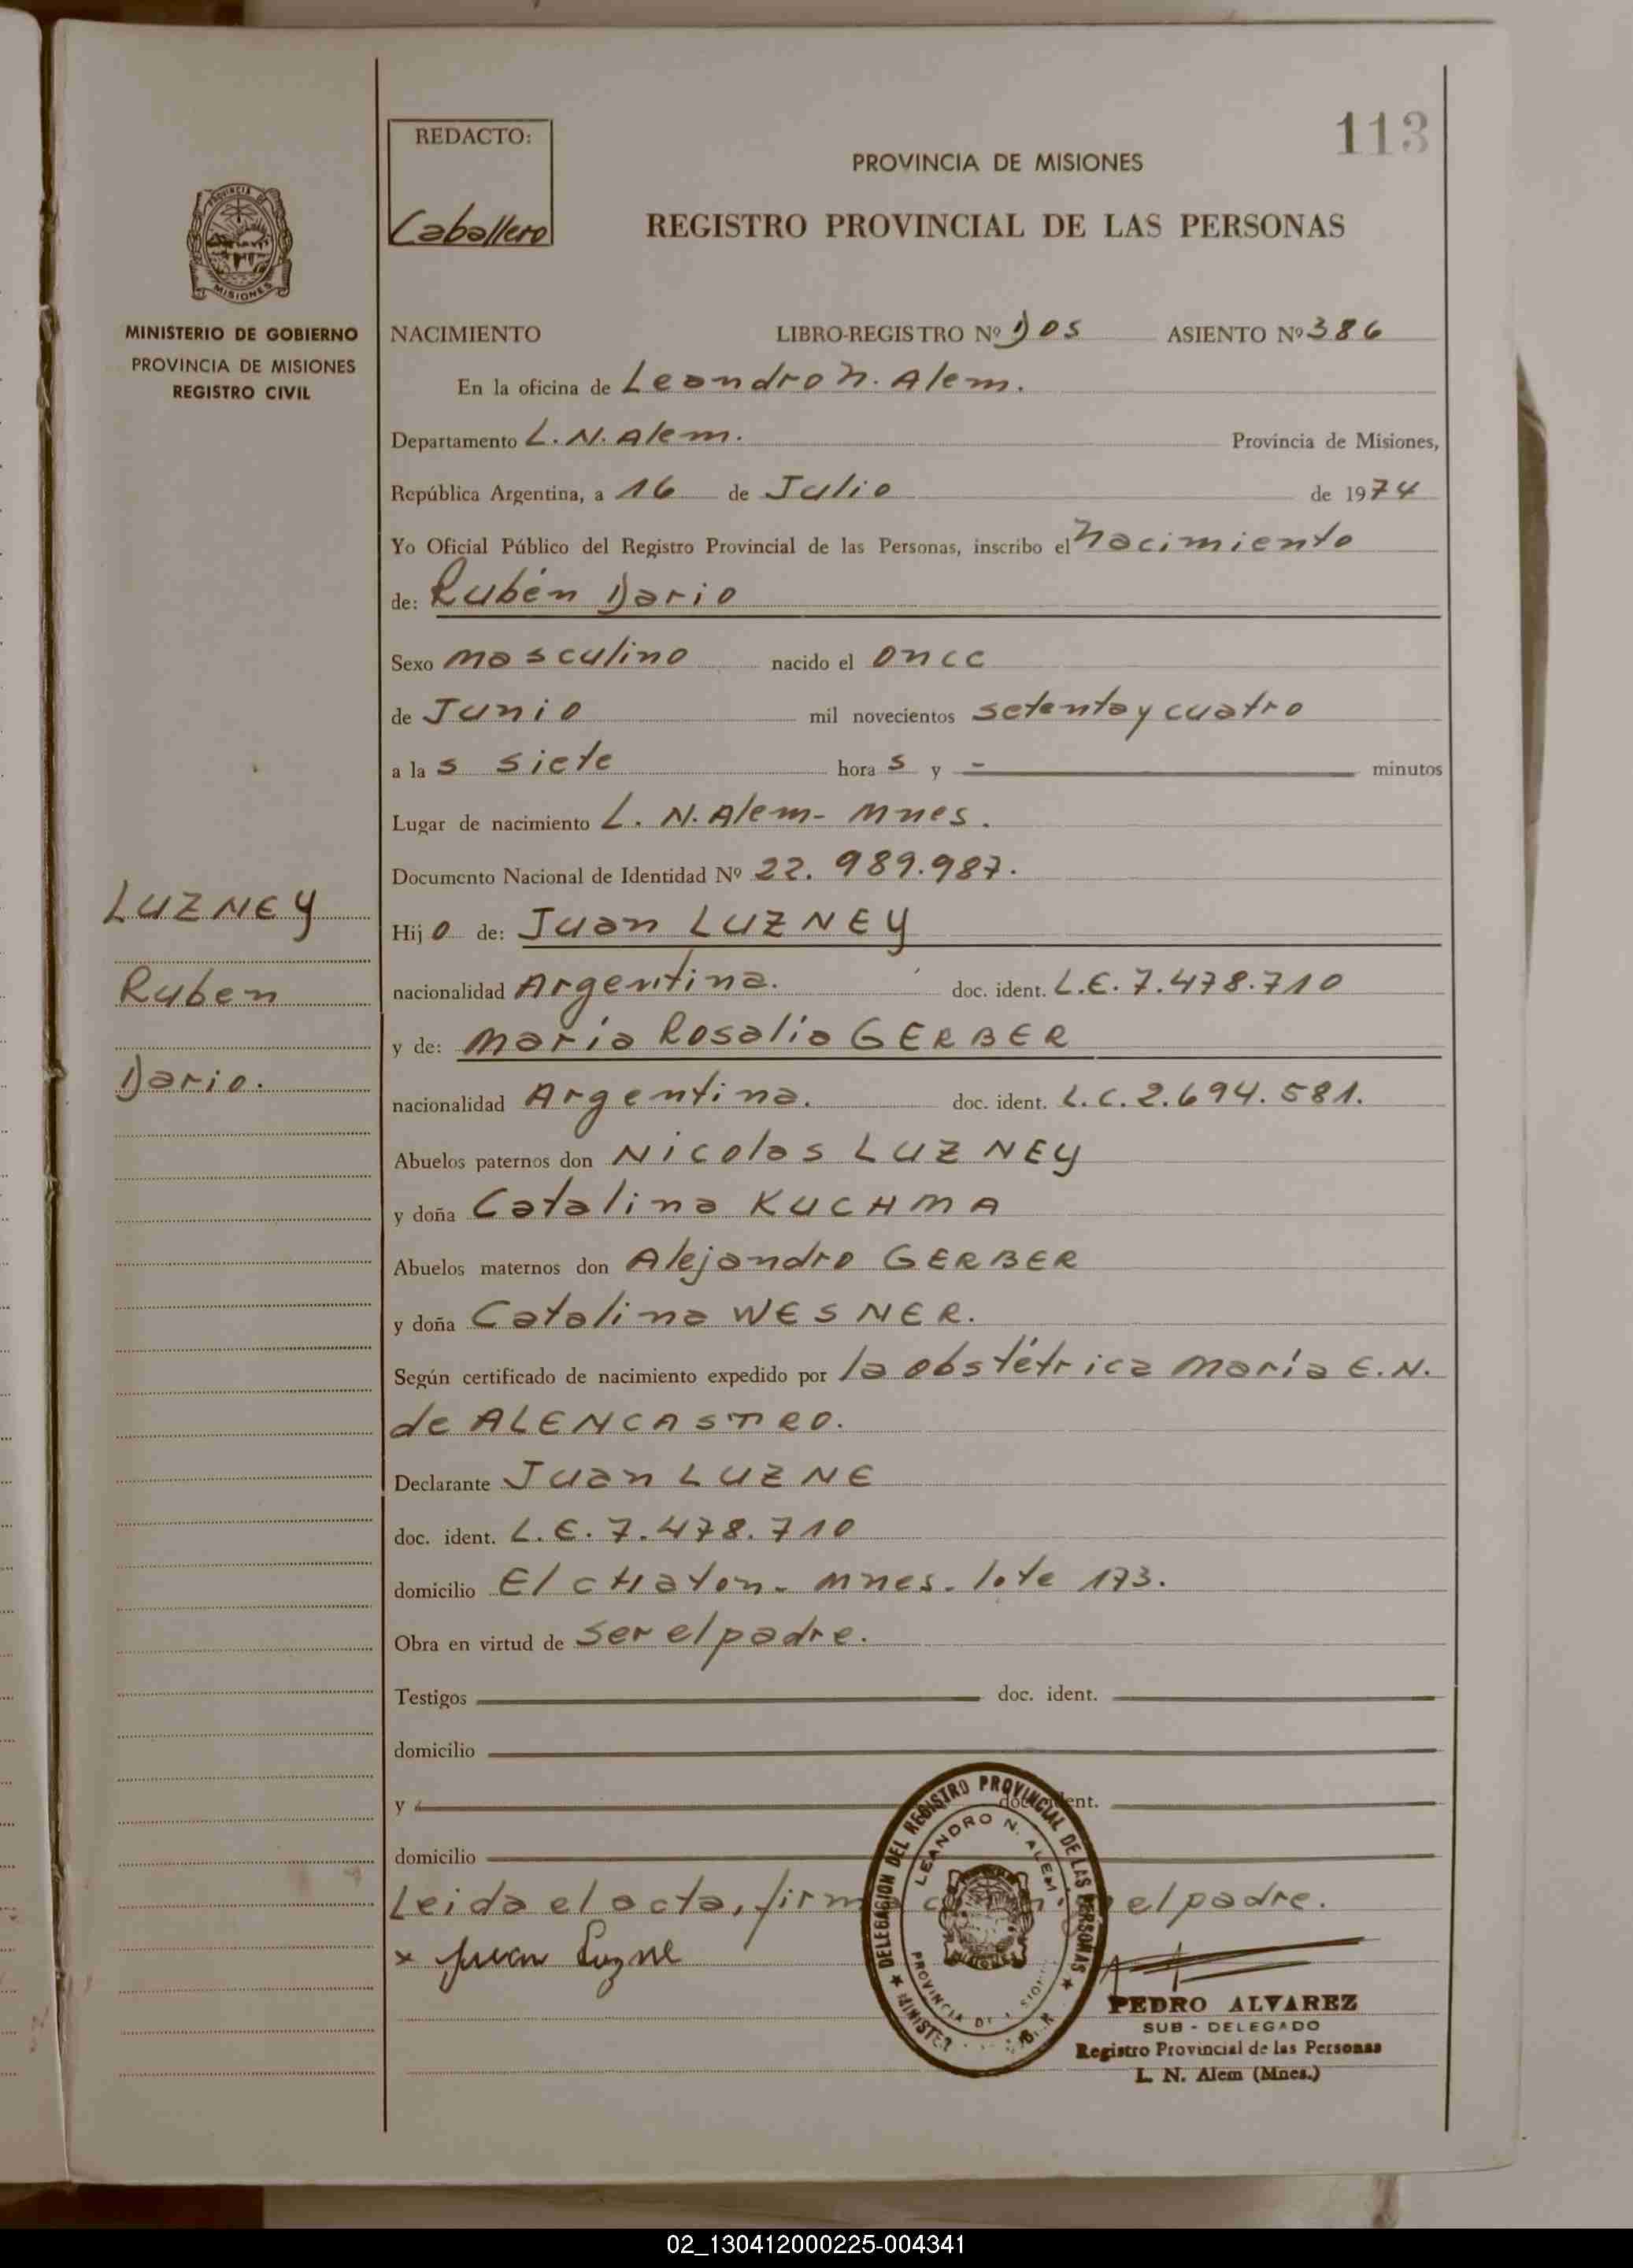 113
REDACTO:
Caballero
PROVINCIA DE MISIONES
REGISTRO PROVINCIAL DE LAS PERSONAS
PROVINCIA DE
MISIONES
MINISTERIO DE GOBIERNO
PROVINCIA DE MISIONES
REGISTRO CIVIL
NACIMIENTO LIBRO-REGISTRO Nº DOS ASIENTO Nº 386
En la oficina de Leandro N. Alem.
Departamento L. N. Alem. Provincia de Misiones,
República Argentina, a 16 de Julio de 1974
Yo Oficial Público del Registro Provincial de las Personas, inscribo el Nacimiento
de: Rubén Dario
Sexo masculino nacido el once
de Junio mil novecientos setenta y cuatro
a las siete horas y - minutos
Lugar de nacimiento L. N. Alem- Mnes.
Documento Nacional de Identidad Nº 22.989.987.
LUZNEY
Ruben
Dario.
Hijo de: Juan LUZNEY
nacionalidad Argentina. doc. ident. L.E. 7.478.710
y de: María Rosalia GERBER
nacionalidad Argentina. doc. ident. L.C. 2.694.581.
Abuelos paternos don Nicolas LUZNEY
y doña Catalina KUCHMA
Abuelos maternos don Alejandro GERBER
y doña Catalina WESNER.
Según certificado de nacimiento expedido por la obstétrica María E.N.
de ALENCASTRO.
Declarante Juan LUZNE
doc. ident. L.E. 7.478.710
domicilio El CHaton- Mnes- lote 173.
Obra en virtud de ser el padre.
Testigos doc. ident.
domicilio
y doc. ident.
domicilio
Leida el acta, firma el padre.
x Juan Luzne
DELEGACION DEL REGISTRO PROVINCIAL DE LAS PERSONAS
LEANDRO N. ALEM
PROVINCIA DE
PEDRO ALVAREZ
SUB - DELEGADO
Registro Provincial de las Personas
L. N. Alem (Mnes.)
02_130412000225-004341